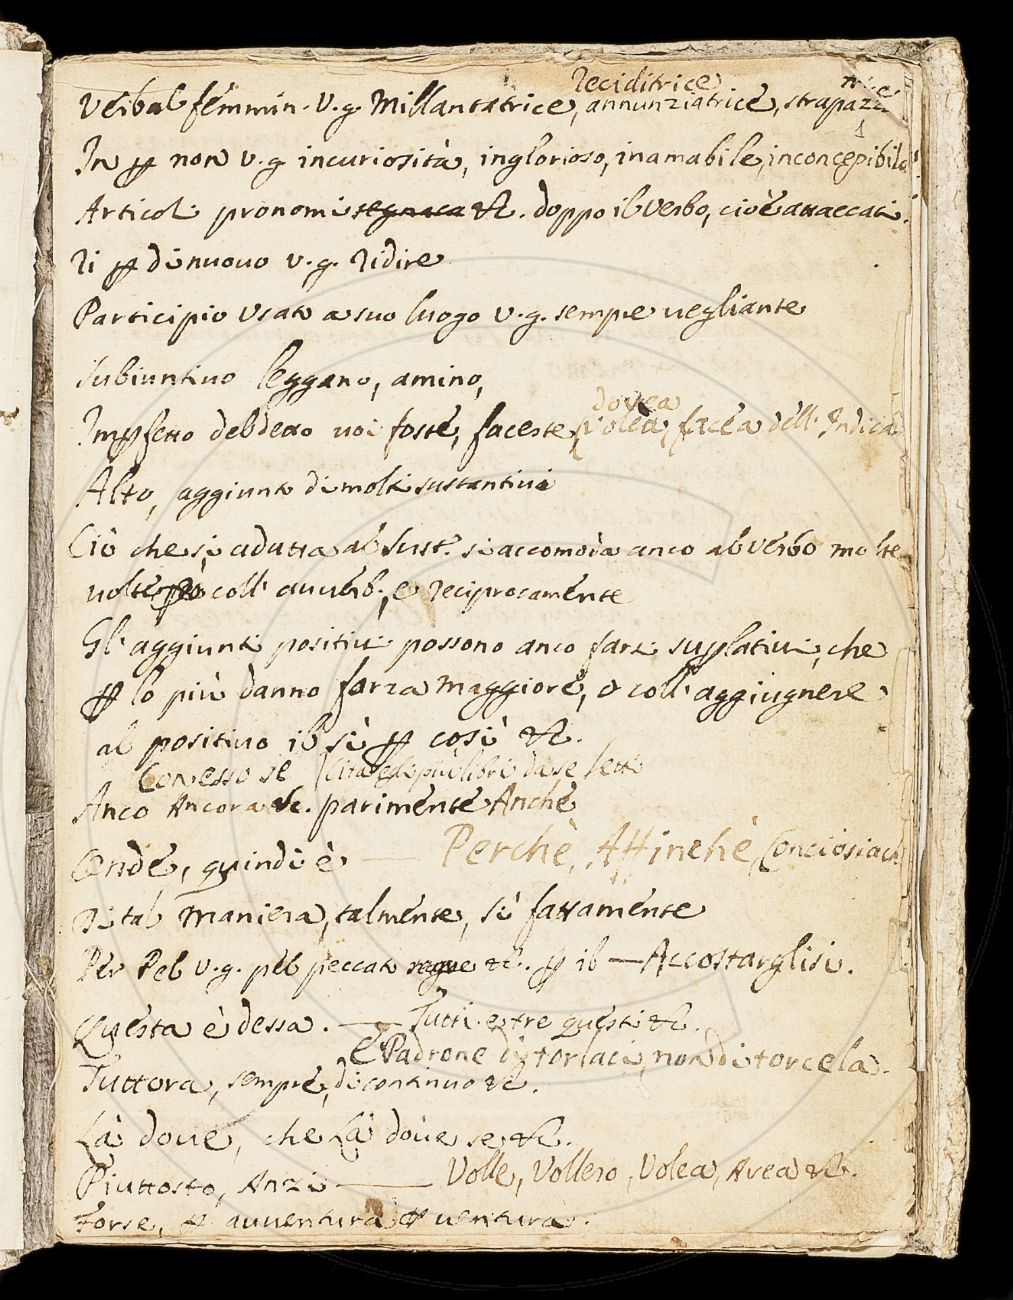 reciditrice
Verbal femmin. v.g. Millantatrice, annunziatrice, strapazza
In p non v.g. incuriosità, inglorioso, inamabile, inconcepibile
Articoli pronomi segnaca &c. doppo il verbo, cioè attaccati.
Ri p di nuovo v.g. ridire
Participio usato a suo luogo v.g. sempre uegliante
Subiuntivo leggano, amino,
dovea
Impfetto debdeno voi foste, faceste, volea, facea dell' Indica
Alto, aggiunto di molti sustantivi
Ciò che si adatta al Sust. si accomoda anco al verbo molte
uolte però coll' auuerb., e reciprocamente
Gl' aggiunti positiui possono anco farsi suplatiui, che
p lo più danno forza maggiore, o coll' aggiugnere
al positiuo il sì p così &c.
Con esso se
Anco Ancora &c. parimente Anche
Onde, quindi è — Perchè, Affinchè, Conciosiach
Di tal maniera, talmente, sì fattamente
Per Pel v.g. pel peccato &c. p il — Accostarglisi.
Questa è dessa. — Tutti e tre questi &c.
È Padrone di torlaci, non di torcela.
Tuttora, sempre, di continuo &c.
Là doue, che Là doue se &c.
Piuttosto, Anzi — Volle, Vollero, Volea, Avea &c.
Forse, p auuentura p uentura.